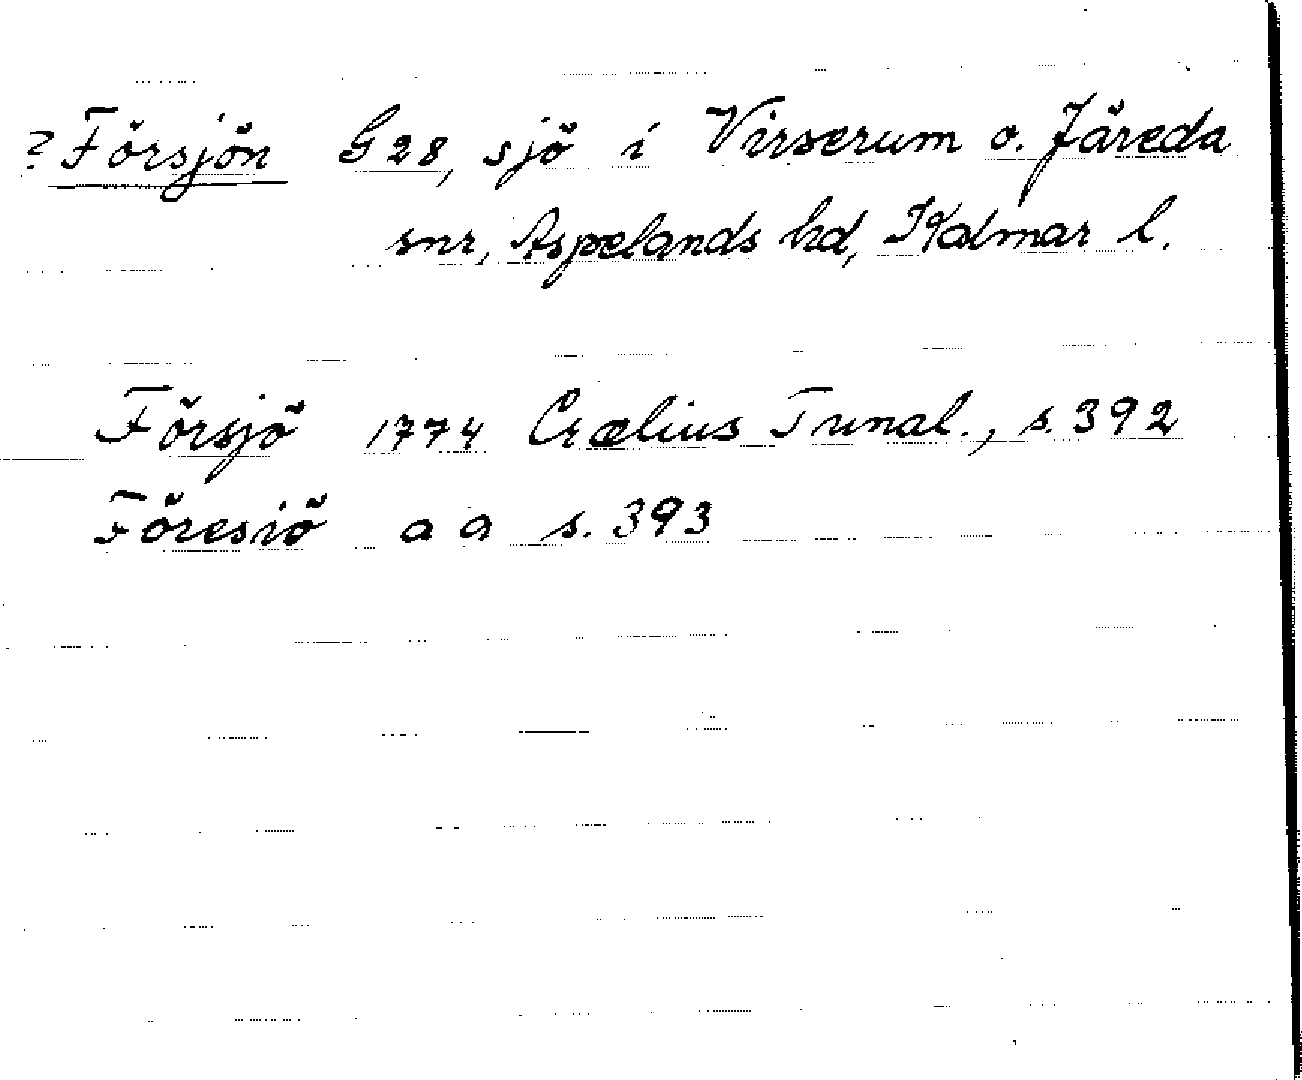 ? Försjön G28, sjö i Virserum o. Järeda
snr, Aspelands hd, Kalmar l.
Försjö 1774 Crælius Tunal., s. 392
Föresiö a a s. 393